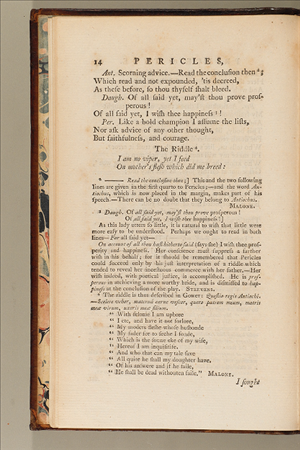 14 PERICLES,
Ant. Scorning advice.—Read the conclusion then 2;
Which read and not expounded, 'tis decreed,
As these before, so thou thyself shalt bleed.
Daugh. Of all said yet, may'st thou prove prosperous!
Of all said yet, I wish thee happiness 3!
Per. Like a bold champion I assume the lists,
Nor ask advice of any other thought,
But faithfulness, and courage.
The Riddle 4.
I am no viper, yet I feed
On mother's flesh which did me breed:
2 —— Read the conclusion then;] This and the two following
lines are given in the first quarto to Pericles;—and the word An-
tiochus, which is now placed in the margin, makes part of his
speech—There can be no doubt that they belong to Antiochus.
MALONE.
3 Daugh. Of all said yet, may'st thou prove prosperous!
Of all said yet, I wish thee happiness!]
As this lady utters so little, it is natural to wish that little were
more easily to be understood. Perhaps we ought to read in both
lines—For all said yet—
On account of all thou hast hitherto said (says she) I wish thee pros-
perity and happiness. Her conscience must suggest a farther
wish in his behalf; for it should be remembered that Pericles
could succeed only by his just interpretation of a riddle which
tended to reveal her incestuous commerce with her father.—Her
wish indeed, with poetical justice, is accomplished. He is pros-
perous in atchieving a more worthy bride, and is dismissed to hap-
piness at the conclusion of the play. STEEVENS.
4 The riddle is thus described in GOWER: Questio regis Antiochi.
—Scelere vehor, materna carne vescor, quero patrem meum, matris
mee virum, uxoris mee filium.
“ With felonie I am upbore
“ I ete, and have it not forlore,
“ My moders fleshe whose husbonde
“ My fader for to seche I fonde,
“ Which is the sonne eke of my wife,
“ Hereof I am inquisitife.
“ And who that can my tale save
“ All quite he shall my doughter have.
“ Of his answere and if he faile,
“ He shall be dead withouten faile.” MALONE.
I sought